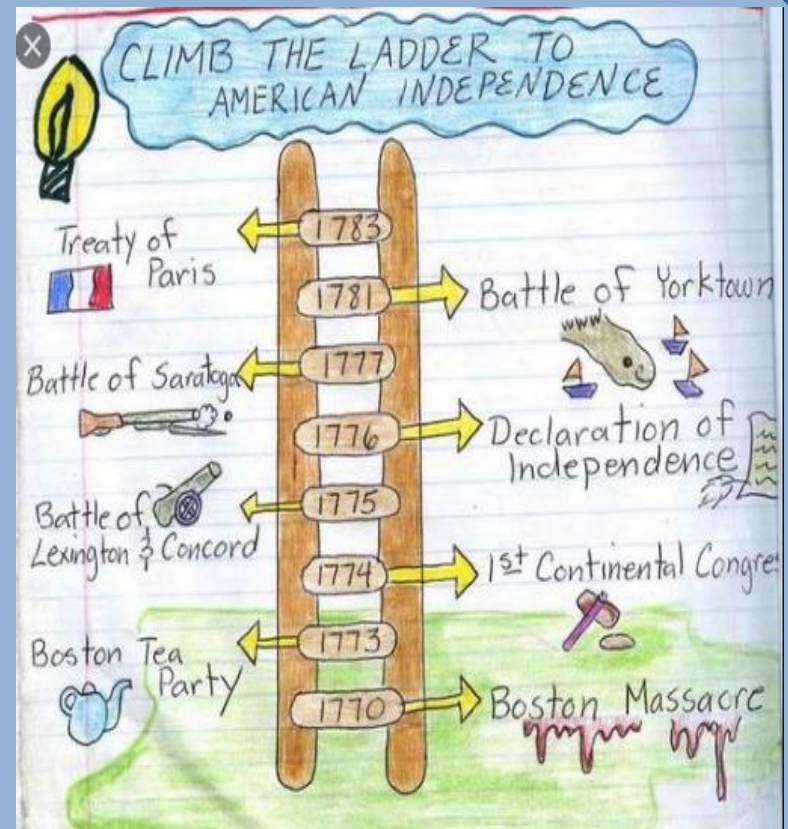 CLIMB THE LADDER TO
AMERICAN INDEPENDENCE
1783
Treaty of
Paris
1781
Battle of Yorktown
1777
Battle of Saratoga
1776
Declaration of
Independence
1775
Battle of
Lexington & Concord
1774
1st Continental Congres
1773
Boston Tea
Party
1770
Boston Massacre